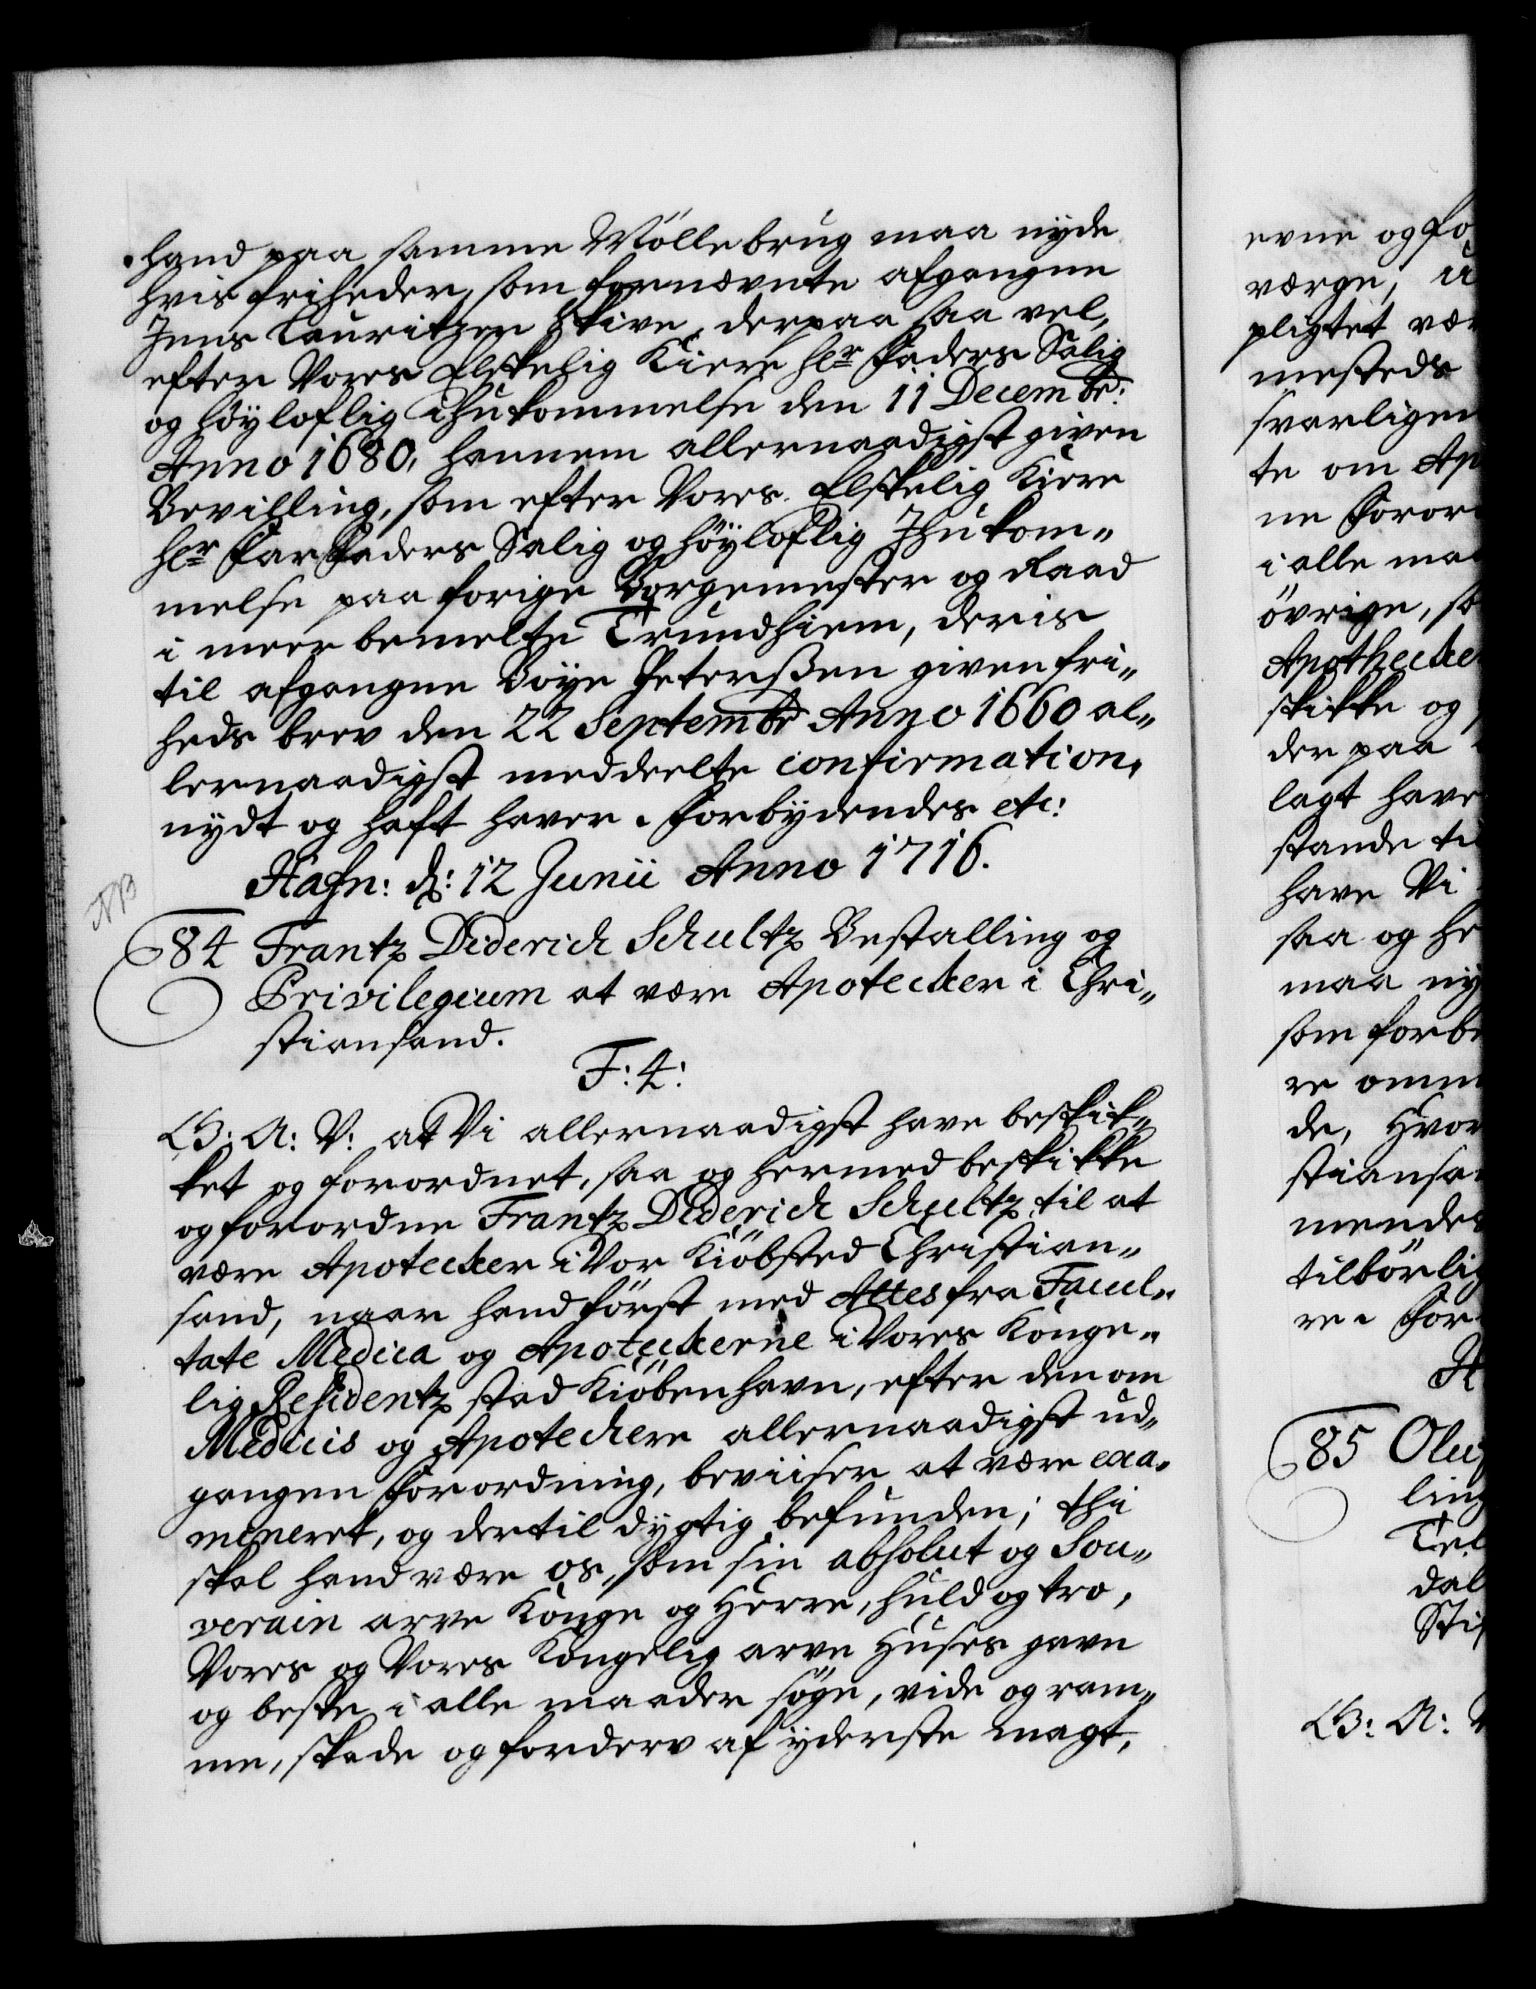 hand paa samme Mölle brug maa nyde
hvis friheder, som fornævnte afgangne
Jens Lauritzen Skive, derpaa saa vel,
efter Vores Elskelig Kiere Hr Faders Salig
og höyloflig Ihukommelse den 11 Decembr:
Anno 1680, hannem allernaadigst given
Bevilling, som efter Vores Elskelig Kiere
Hr FarFaders Salig og höyloflig Ihukom„
melse paa forige Borgemester og Raad
i meer bemelte Trundhiem, deris
til afgangne Böye Peterßen given fri„
heds brev den 22 Septembr Anno 1660 al„
lernaadigst meddeelte confirmation,
nydt og haft haver. Forbydendes etc:
Hafn: d: 12 Junii Anno 1716.
NB
84 Frantz Diderich Schultz Bestalling og
Privilegium at være Apotecker i Chri„
stiansand.
F: 4:
G: A: V: at Vi allernaadigst have beskik„
ket og forordnet, saa og hermed beskikke
og forordne Frantz Diderich Schultz til at
være Apotecker i Vor Kiöbsted Christian„
sand, naar hand först med Attes fra Facul„
tate Medica og Apoteckerne i Vores Konge„
lig Residentz stad Kiöbenhavn, efter den om
Medicis og Apotechere allernaadigst ud„
gangen forordning, beviiser at være exa„
mineret, og dertil dygtig befunden; thi
skal hand være os, som sin absolut og Sou„
verain arve Konge og Herre, huld og tro,
Vores og Vores Kongelig arve Huses gavn
og beste i alle maader söge, vide og ram„
me, skade og forderv af yderste magt,
evne og fo
værge,
pligtet vær
mesteds
svarligen
te om Ap
ne Foror
i alle maa
övrige, so
Apothecke
skikke og
der paa
lagt have
stande ti
have Vi
saa og he
maa ny
som forbe
re omm
de, Hvor
stiansa
mendes
tilbörlig
re. For
H
85 Oluf
ling
Tel
dal
Stif
G: A: V